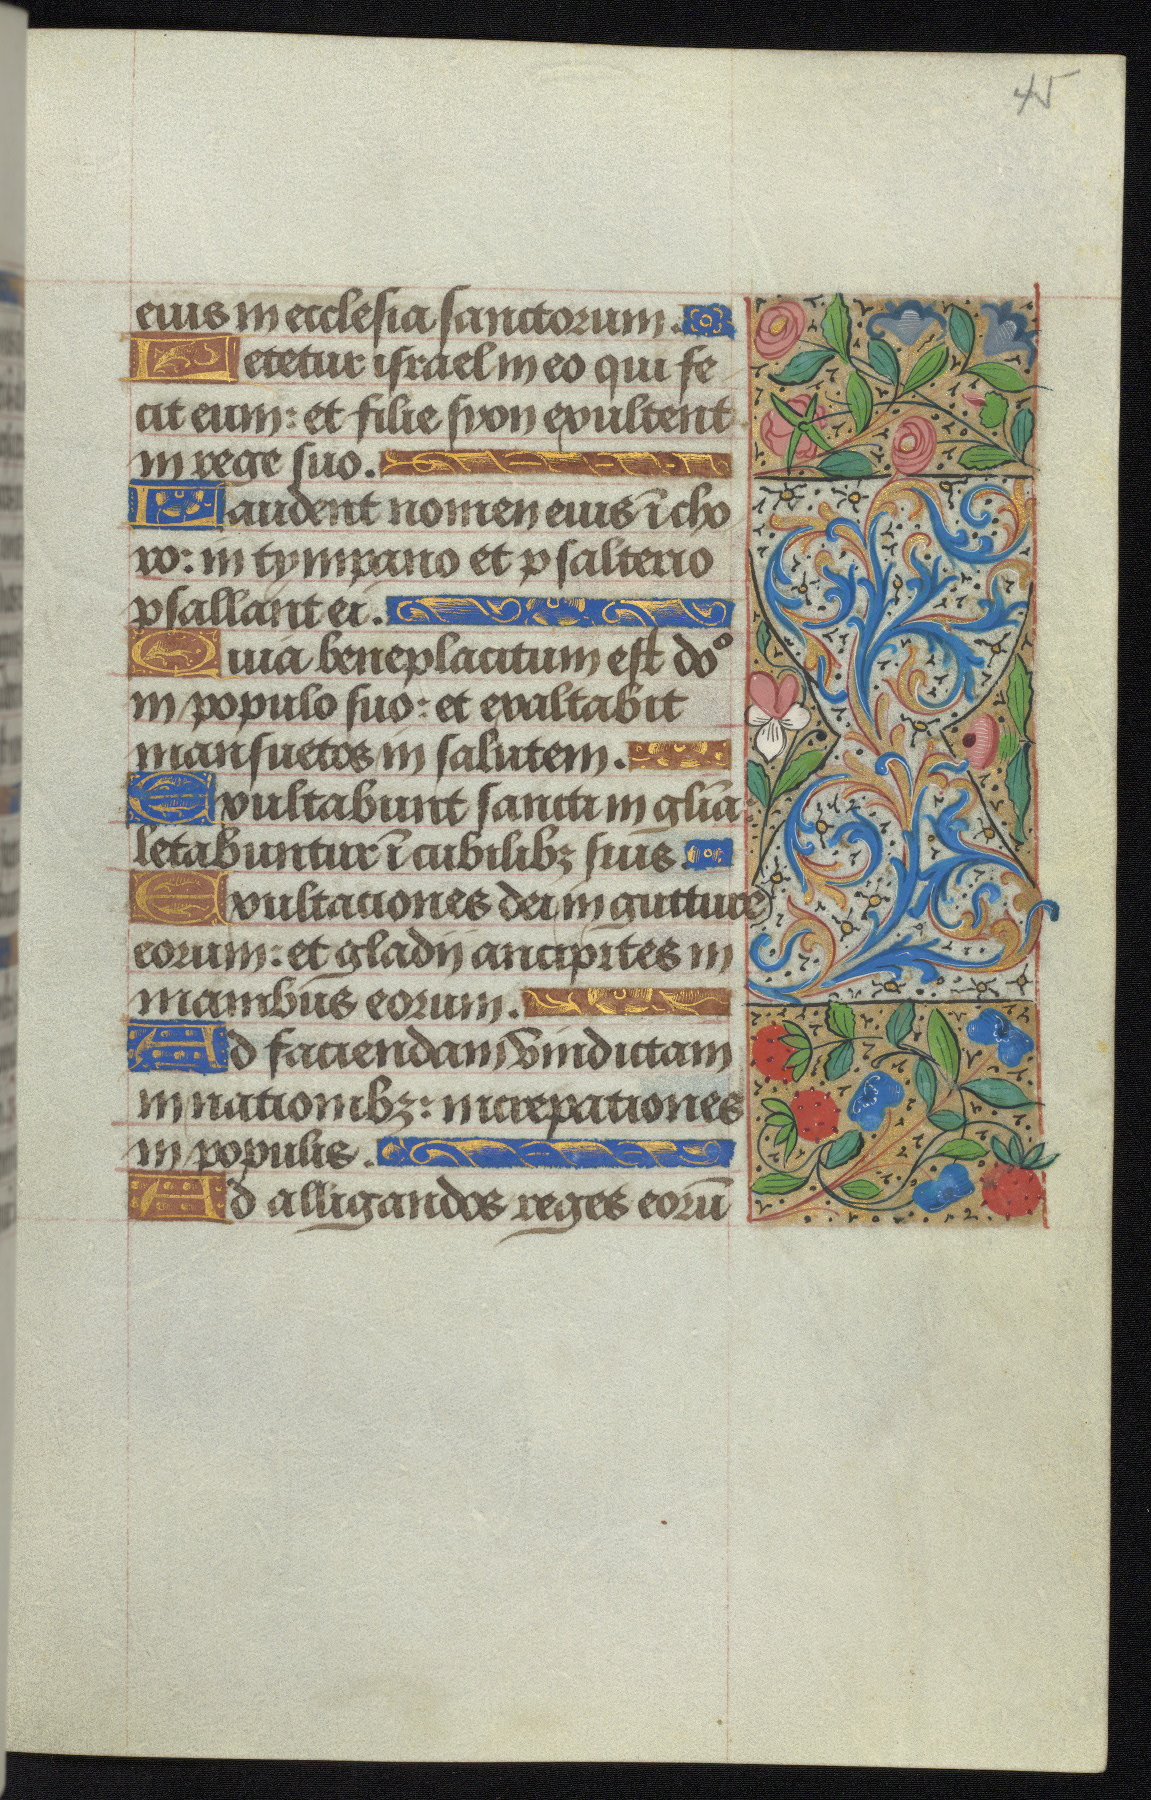 45
eius in ecclesia sanctorum.
Letetur israel in eo qui fe
cit eum: et filie syon exultent
in rege suo.
Laudent nomen eius ī cho
ro: in tympano et psalterio
psallant ei.
Quia beneplacitum est dōo
in populo suo: et exaltabit
mansuetos in salutem.
Exultabunt sancti in glīa
letabuntur ī cubilibꝫ suis.
Exultaciones dei in gutture
eorum: et gladij ancipites in
manibus eorum.
Ad faciendam vindictam
in nationibꝫ: increpationes
in populis.
Ad alligandos reges eorū